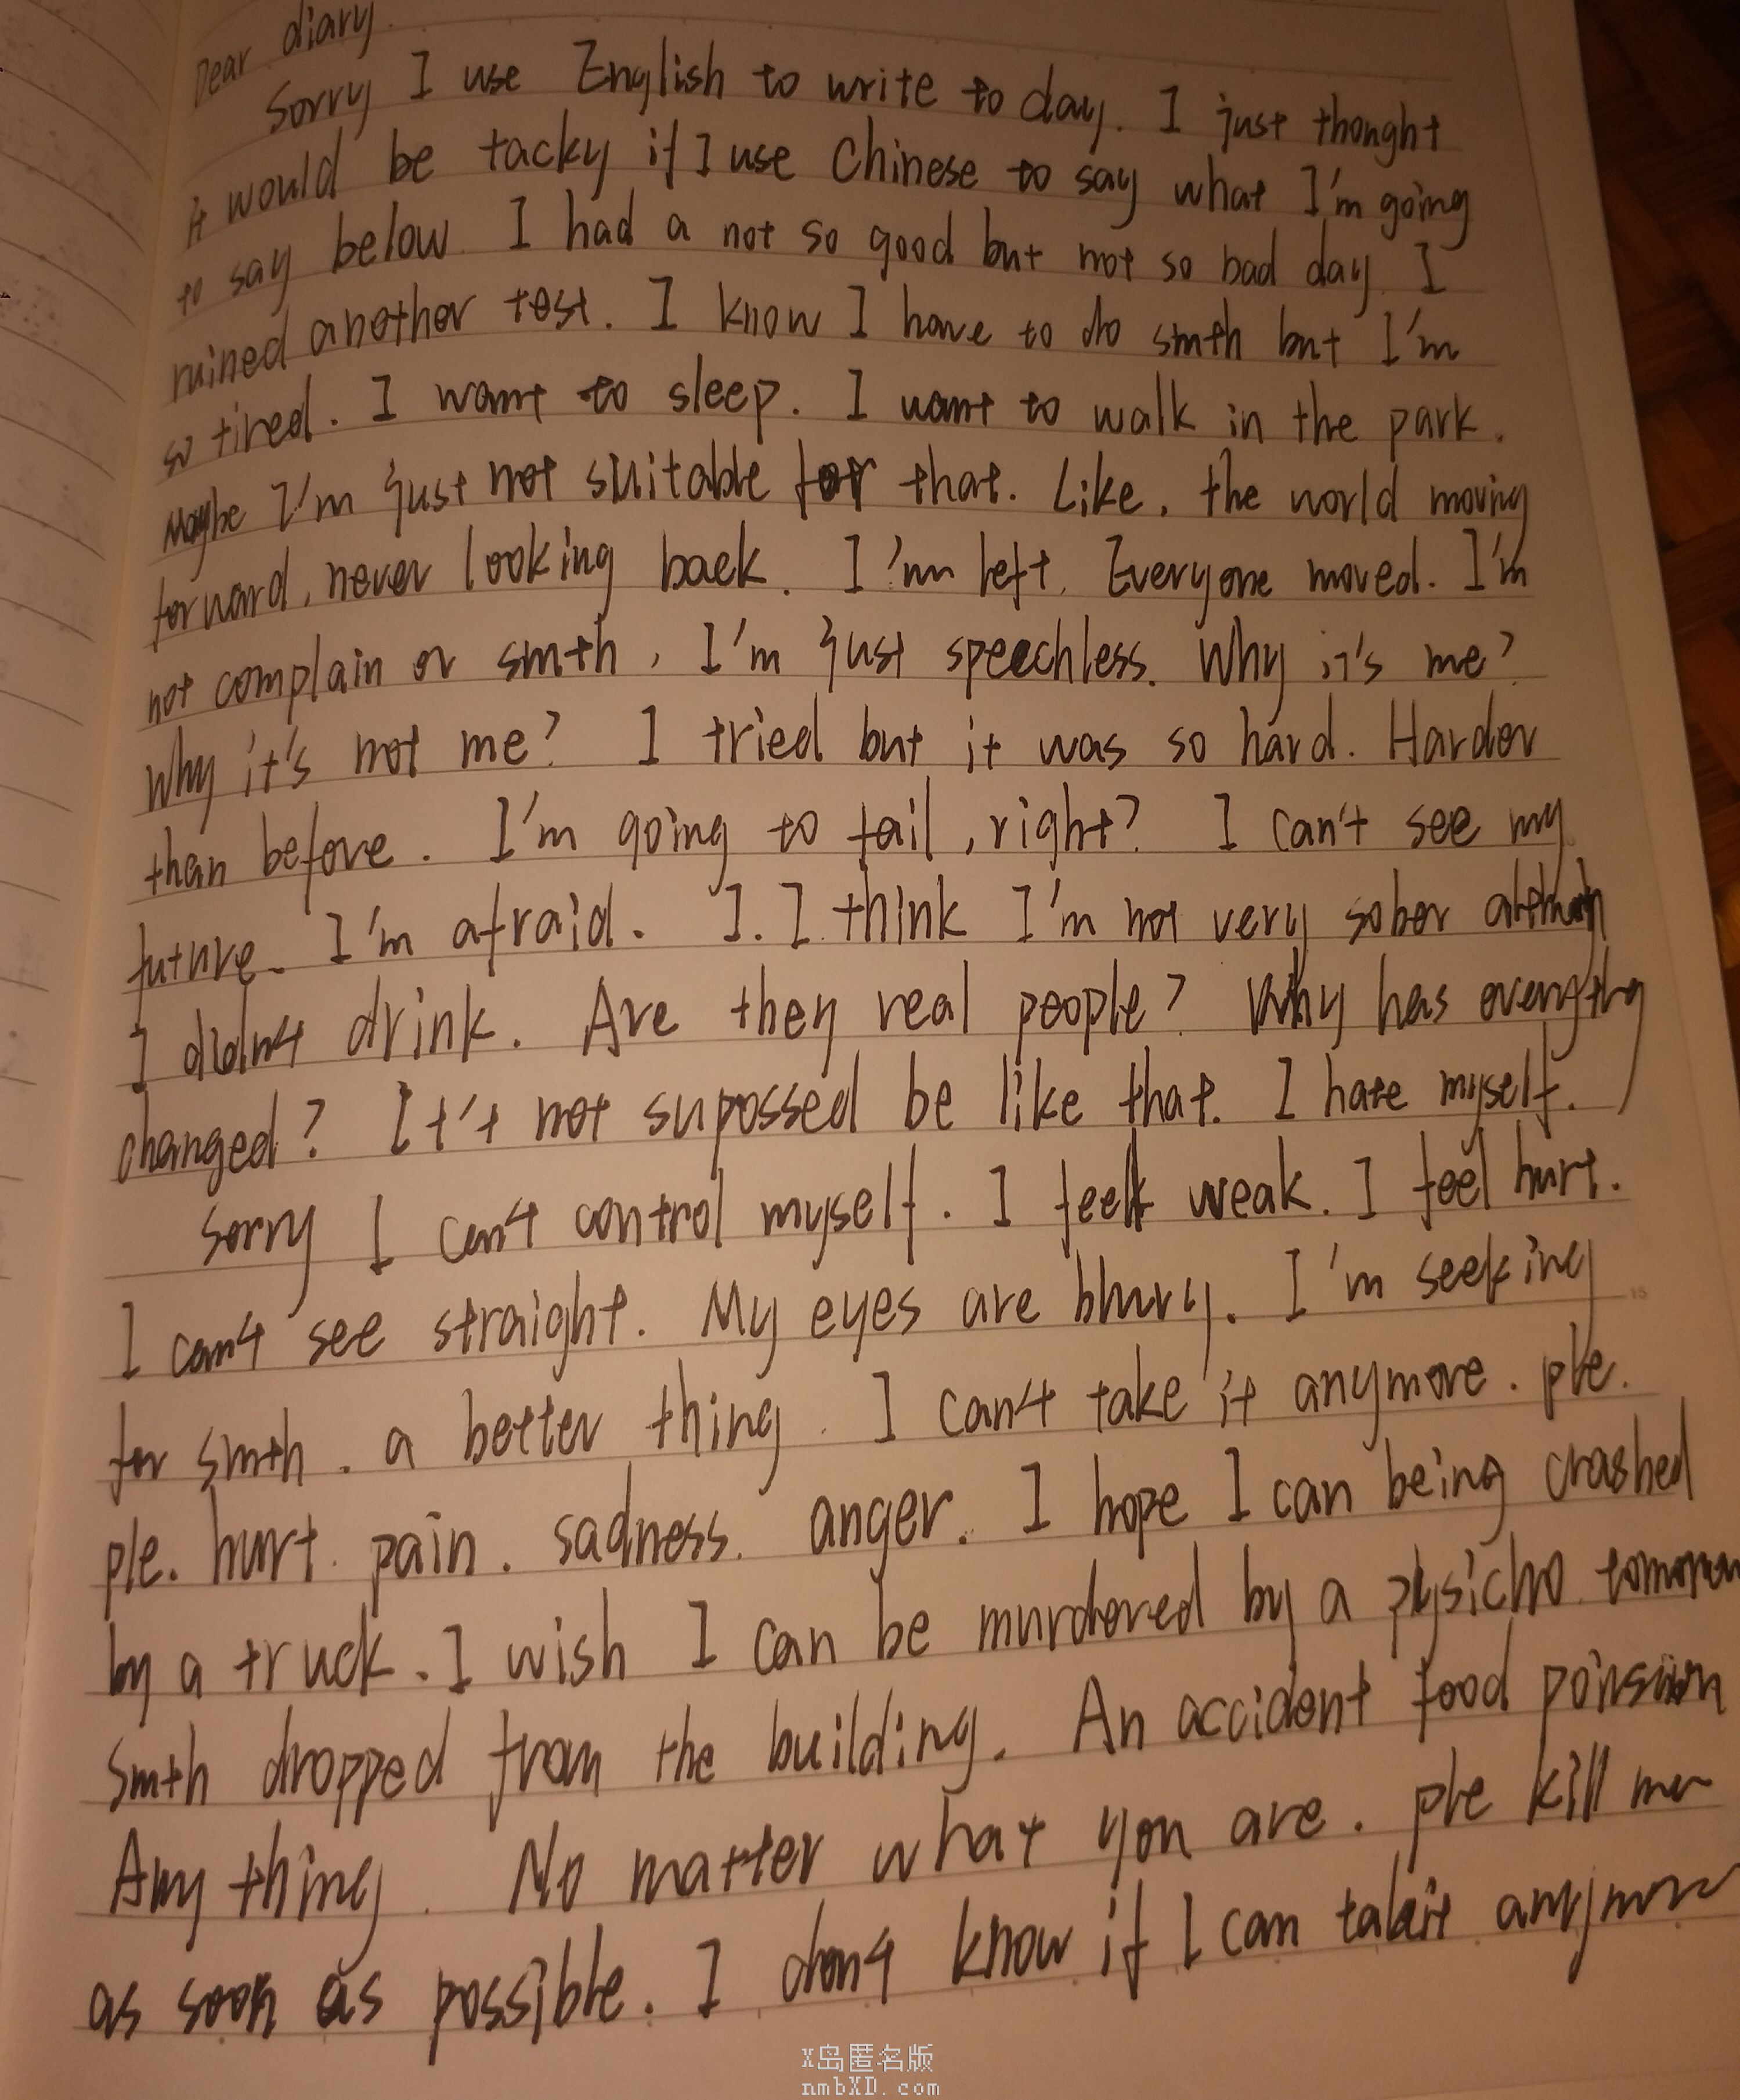 Dear diary.
Sorry I use English to write to day. I just thonght
it would be tacky if I use Chinese to say what I'm going
to say below. I had a not so good but not so bad day. I
ruined another test. I know I have to do smth but I'm
so tired. I want to sleep. I want to walk in the park.
Maybe I'm just not suitable for that. Like, the world moving
forward, never looking back. I'm left. Everyone moved. I'm
not complain or smth, I'm just speechless. Why it's me?
Why it's not me? I tried but it was so hard. Harder
than before. I'm going to fail, right? I can't see my
future. I'm afraid. I. I think I'm not very sober
I didn't drink. Are they real people? Why has
changed? It't not supossed be like that. I hate myself.
Sorry I can't control myself. I feel weak. I feel hurt.
I can't see straight. My eyes are blurry. I'm seeking
for smth. a better thing. I can't take it anymore. ple.
ple. hurt. pain. sadness. anger. I hope I can being crashed
by a truck. I wish I can be murdered by a
smth dropped from the building. An accident food
Any thing. No matter what you are. ple kill me
as soon as possible. I don't know if I can
X岛匿名版
nmbXD.com